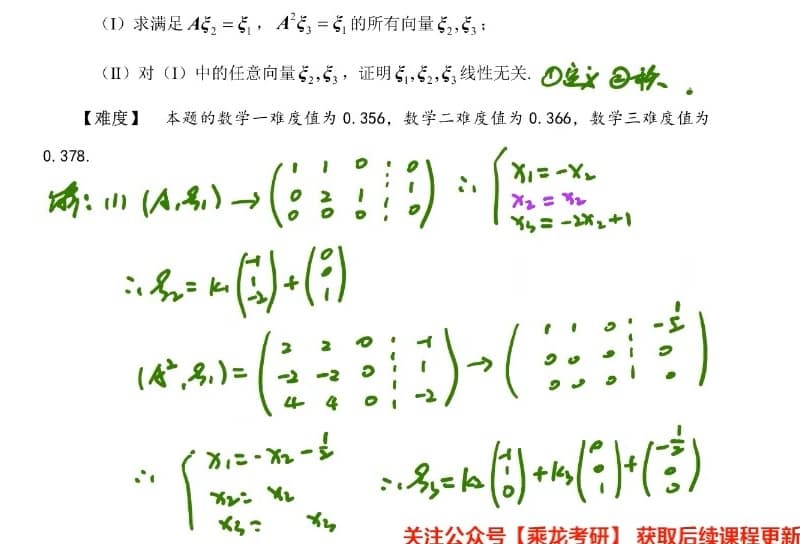 (I) 求满足 Aξ₂ = ξ₁ , A²ξ₃ = ξ₁ 的所有向量 ξ₂, ξ₃ ;
(II) 对 (I) 中的任意向量 ξ₂, ξ₃ , 证明 ξ₁, ξ₂, ξ₃ 线性无关. ①定义 ②秩、
【难度】 本题的数学一难度值为 0.356，数学二难度值为 0.366，数学三难度值为
0.378.
解: (1) (A, ξ₁) → ( 1 1 0 ⋮ 0 ; 0 2 1 ⋮ 1 ; 0 0 0 ⋮ 0 ) ∴ { x₁ = -x₂ ; x₂ = x₂ ; x₃ = -2x₂+1
∴ ξ₂ = k₁ ( -1 ; 1 ; -2 ) + ( 0 ; 0 ; 1 )
(A², ξ₁) = ( 2 2 0 ⋮ -1 ; -2 -2 0 ⋮ 1 ; 4 4 0 ⋮ -2 ) → ( 1 1 0 ⋮ -1/2 ; 0 0 0 ⋮ 0 ; 0 0 0 ⋮ 0 )
∴ { x₁ = -x₂ - 1/2 ; x₂ = x₂ ; x₃ = x₃ ∴ ξ₃ = k₂ ( -1 ; 1 ; 0 ) + k₃ ( 0 ; 0 ; 1 ) + ( -1/2 ; 0 ; 0 )
关注公众号【乘龙考研】 获取后续课程更新